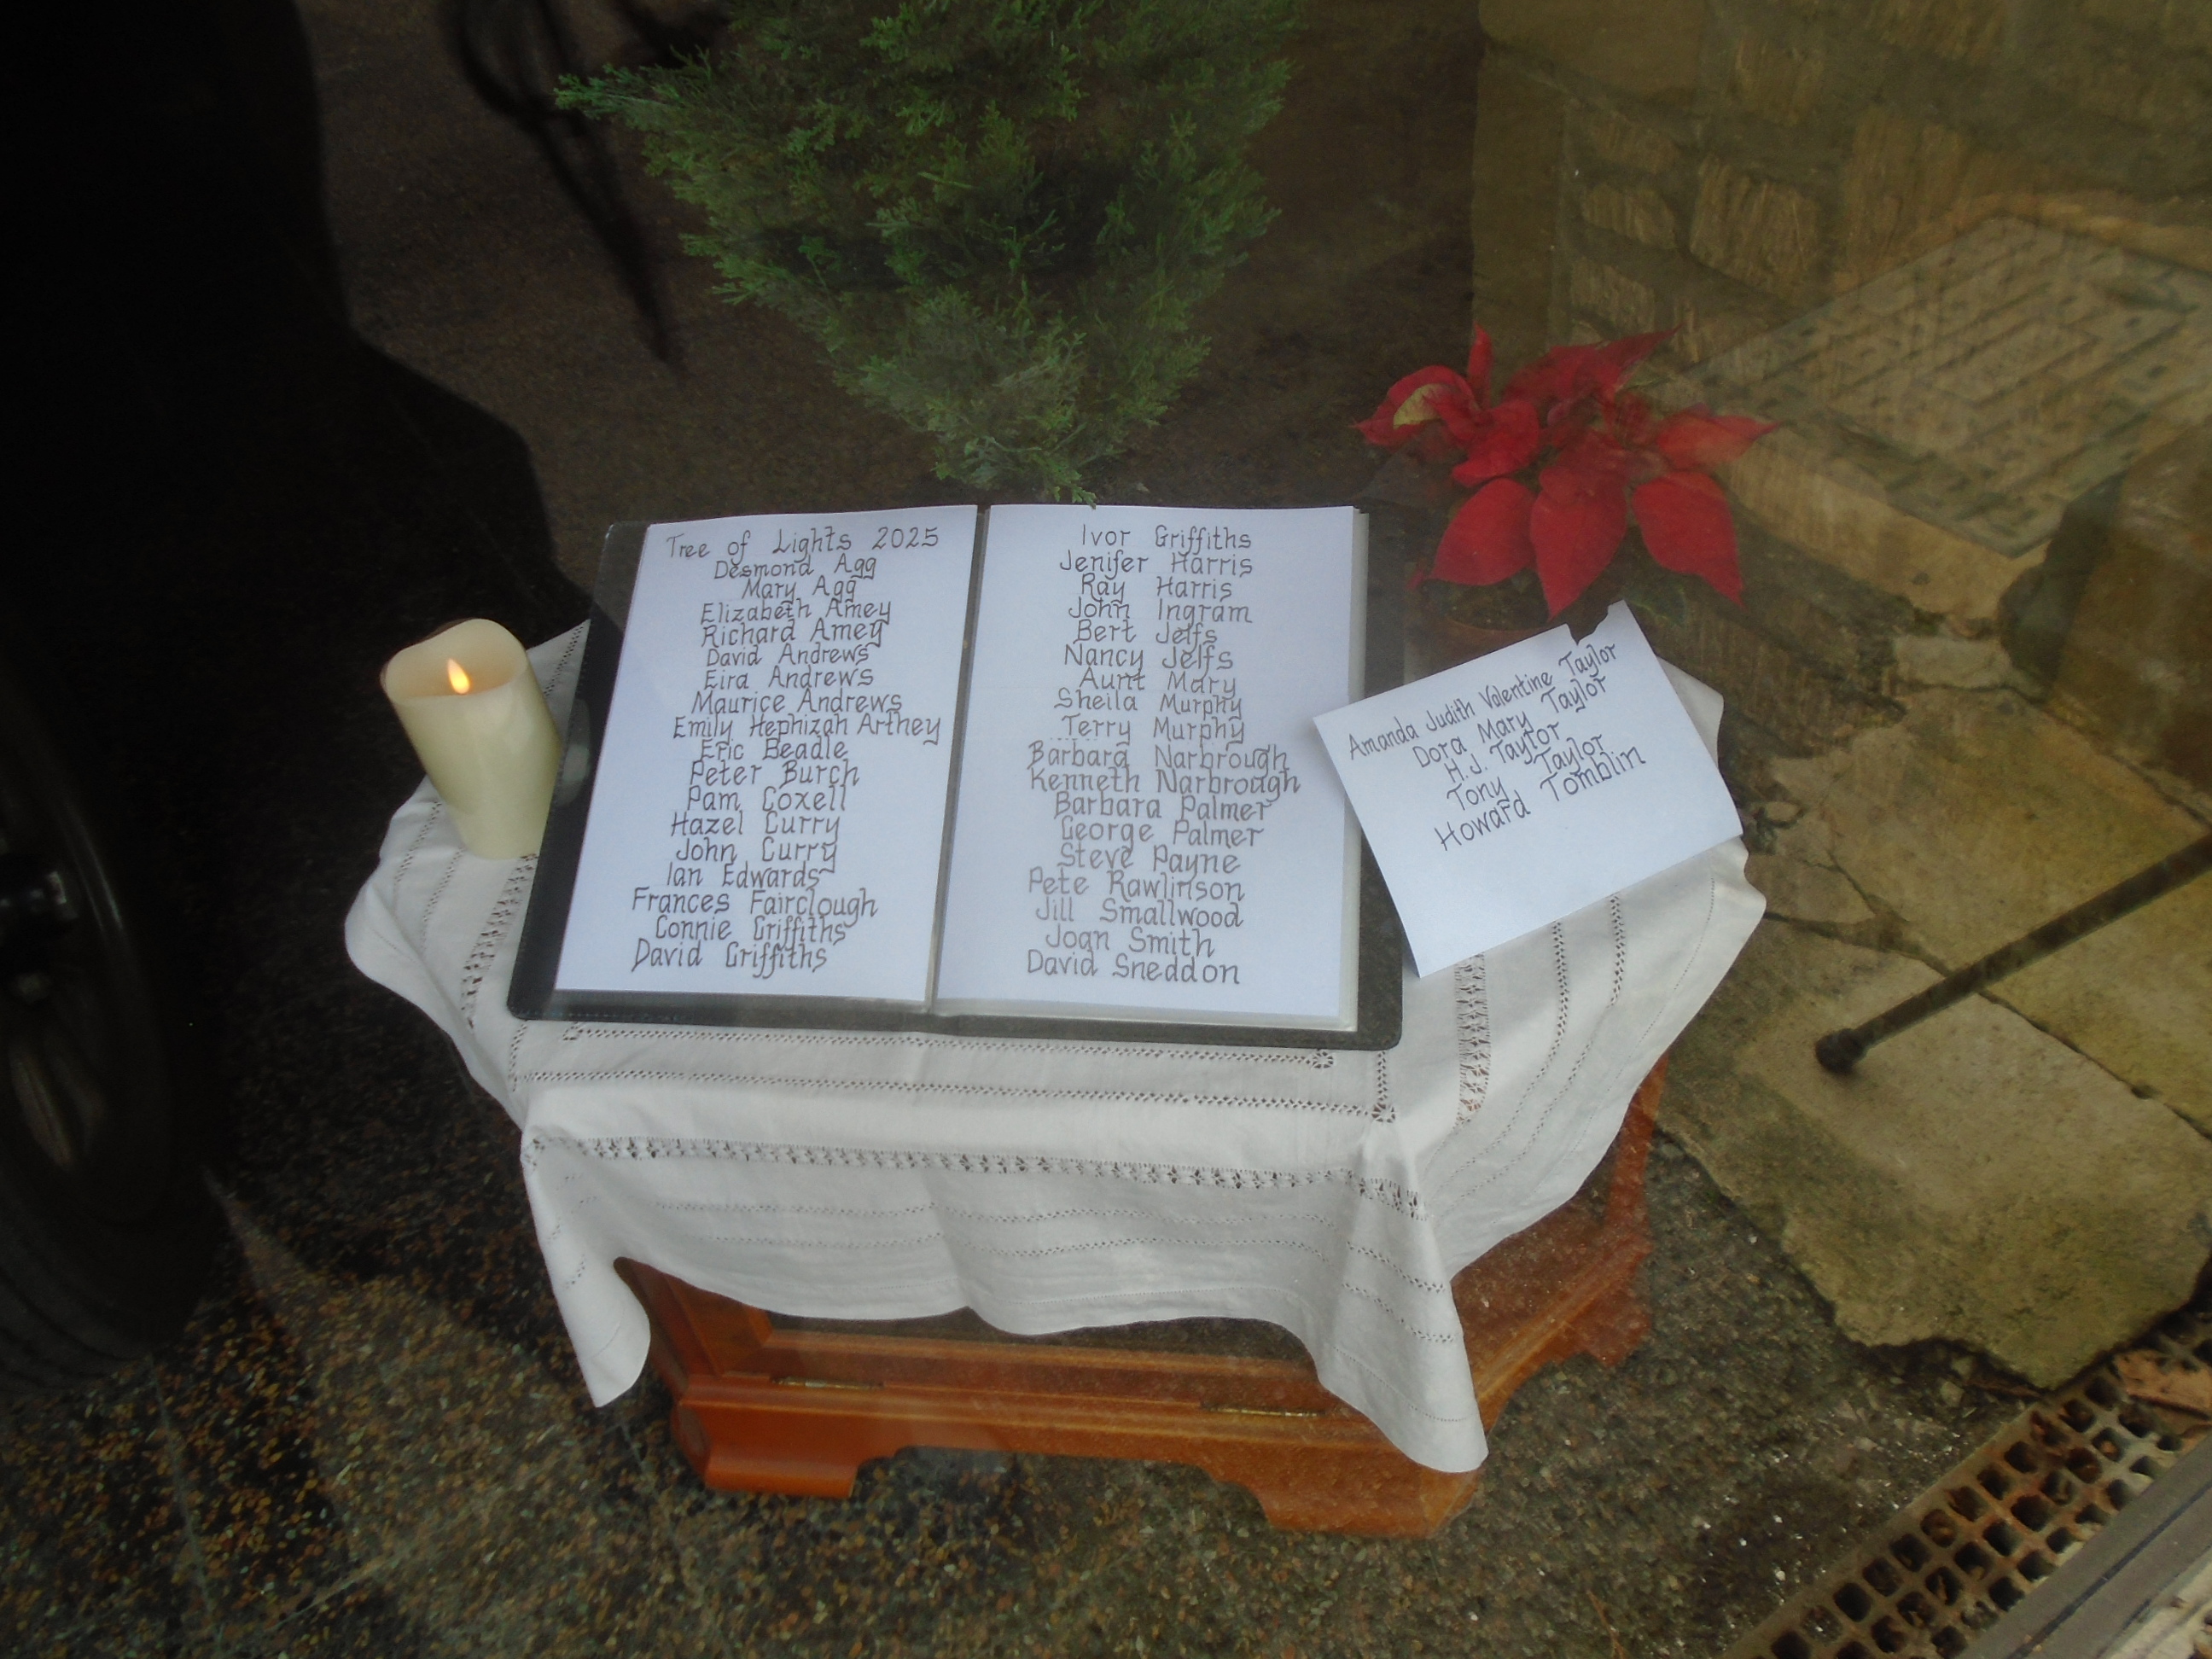 Tree of Lights 2025
Desmond Agg
Mary Agg
Elizabeth Amey
Richard Amey
David Andrews
Eira Andrews
Maurice Andrews
Emily Hephizah Arthey
Eric Beadle
Peter Burch
Pam Coxell
Hazel Curry
John Curry
Ian Edwards
Frances Fairclough
Connie Griffiths
David Griffiths
Ivor Griffiths
Jenifer Harris
Ray Harris
John Ingram
Bert Jelfs
Nancy Jelfs
Aunt Mary
Sheila Murphy
Terry Murphy
Barbara Narbrough
Kenneth Narbrough
Barbara Palmer
George Palmer
Steve Payne
Pete Rawlinson
Jill Smallwood
Joan Smith
David Sneddon
Amanda Judith Valentine Taylor
Dora Mary Taylor
H.J. Taylor
Tony Taylor
Howard Tomblin